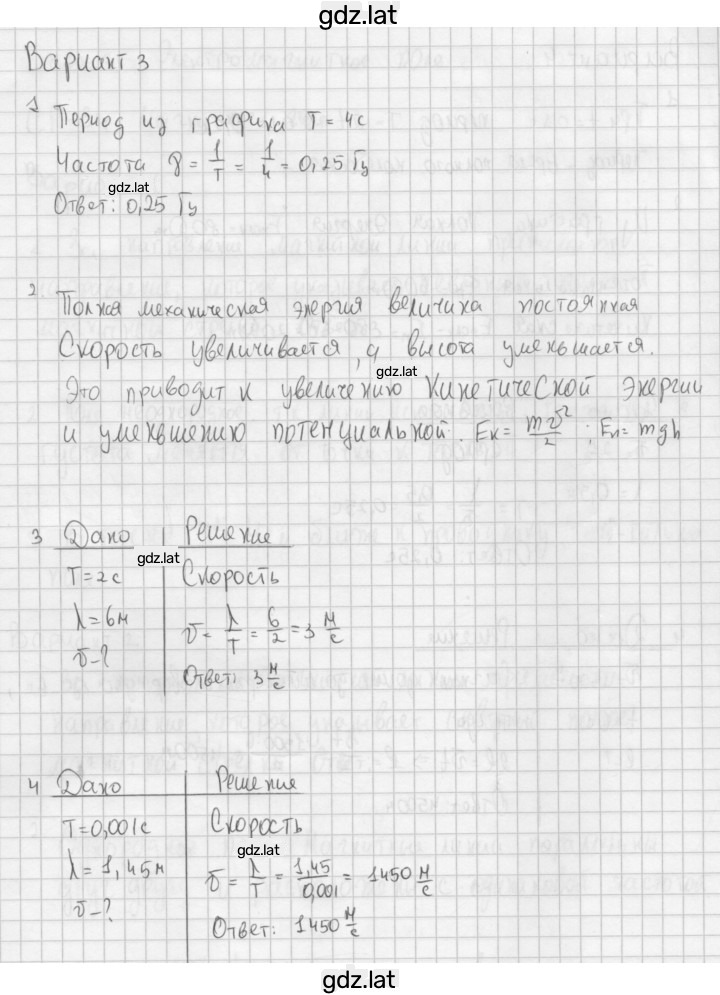 gdz.lat
Вариант 3
1 Период из графика T = 4с
Частота γ = 1/T = 1/4 = 0,25 Гц
gdz.lat
Ответ: 0,25 Гц
2 Полная механическая энергия величина постоянная
Скорость увеличивается, а высота уменьшается.
gdz.lat
Это приводит к увеличению кинетической энергии
и уменьшению потенциальной. Eк = mv²/2 ; Eп = mgh
3 Дано Решение
gdz.lat
T = 2с Скорость
λ = 6м v = λ/T = 6/2 = 3 м/с
v - ? Ответ: 3 м/с
4 Дано Решение
T = 0,001с Скорость
gdz.lat
λ = 1,45м v = λ/T = 1,45/0,001 = 1450 м/с
v - ? Ответ: 1450 м/с
gdz.lat